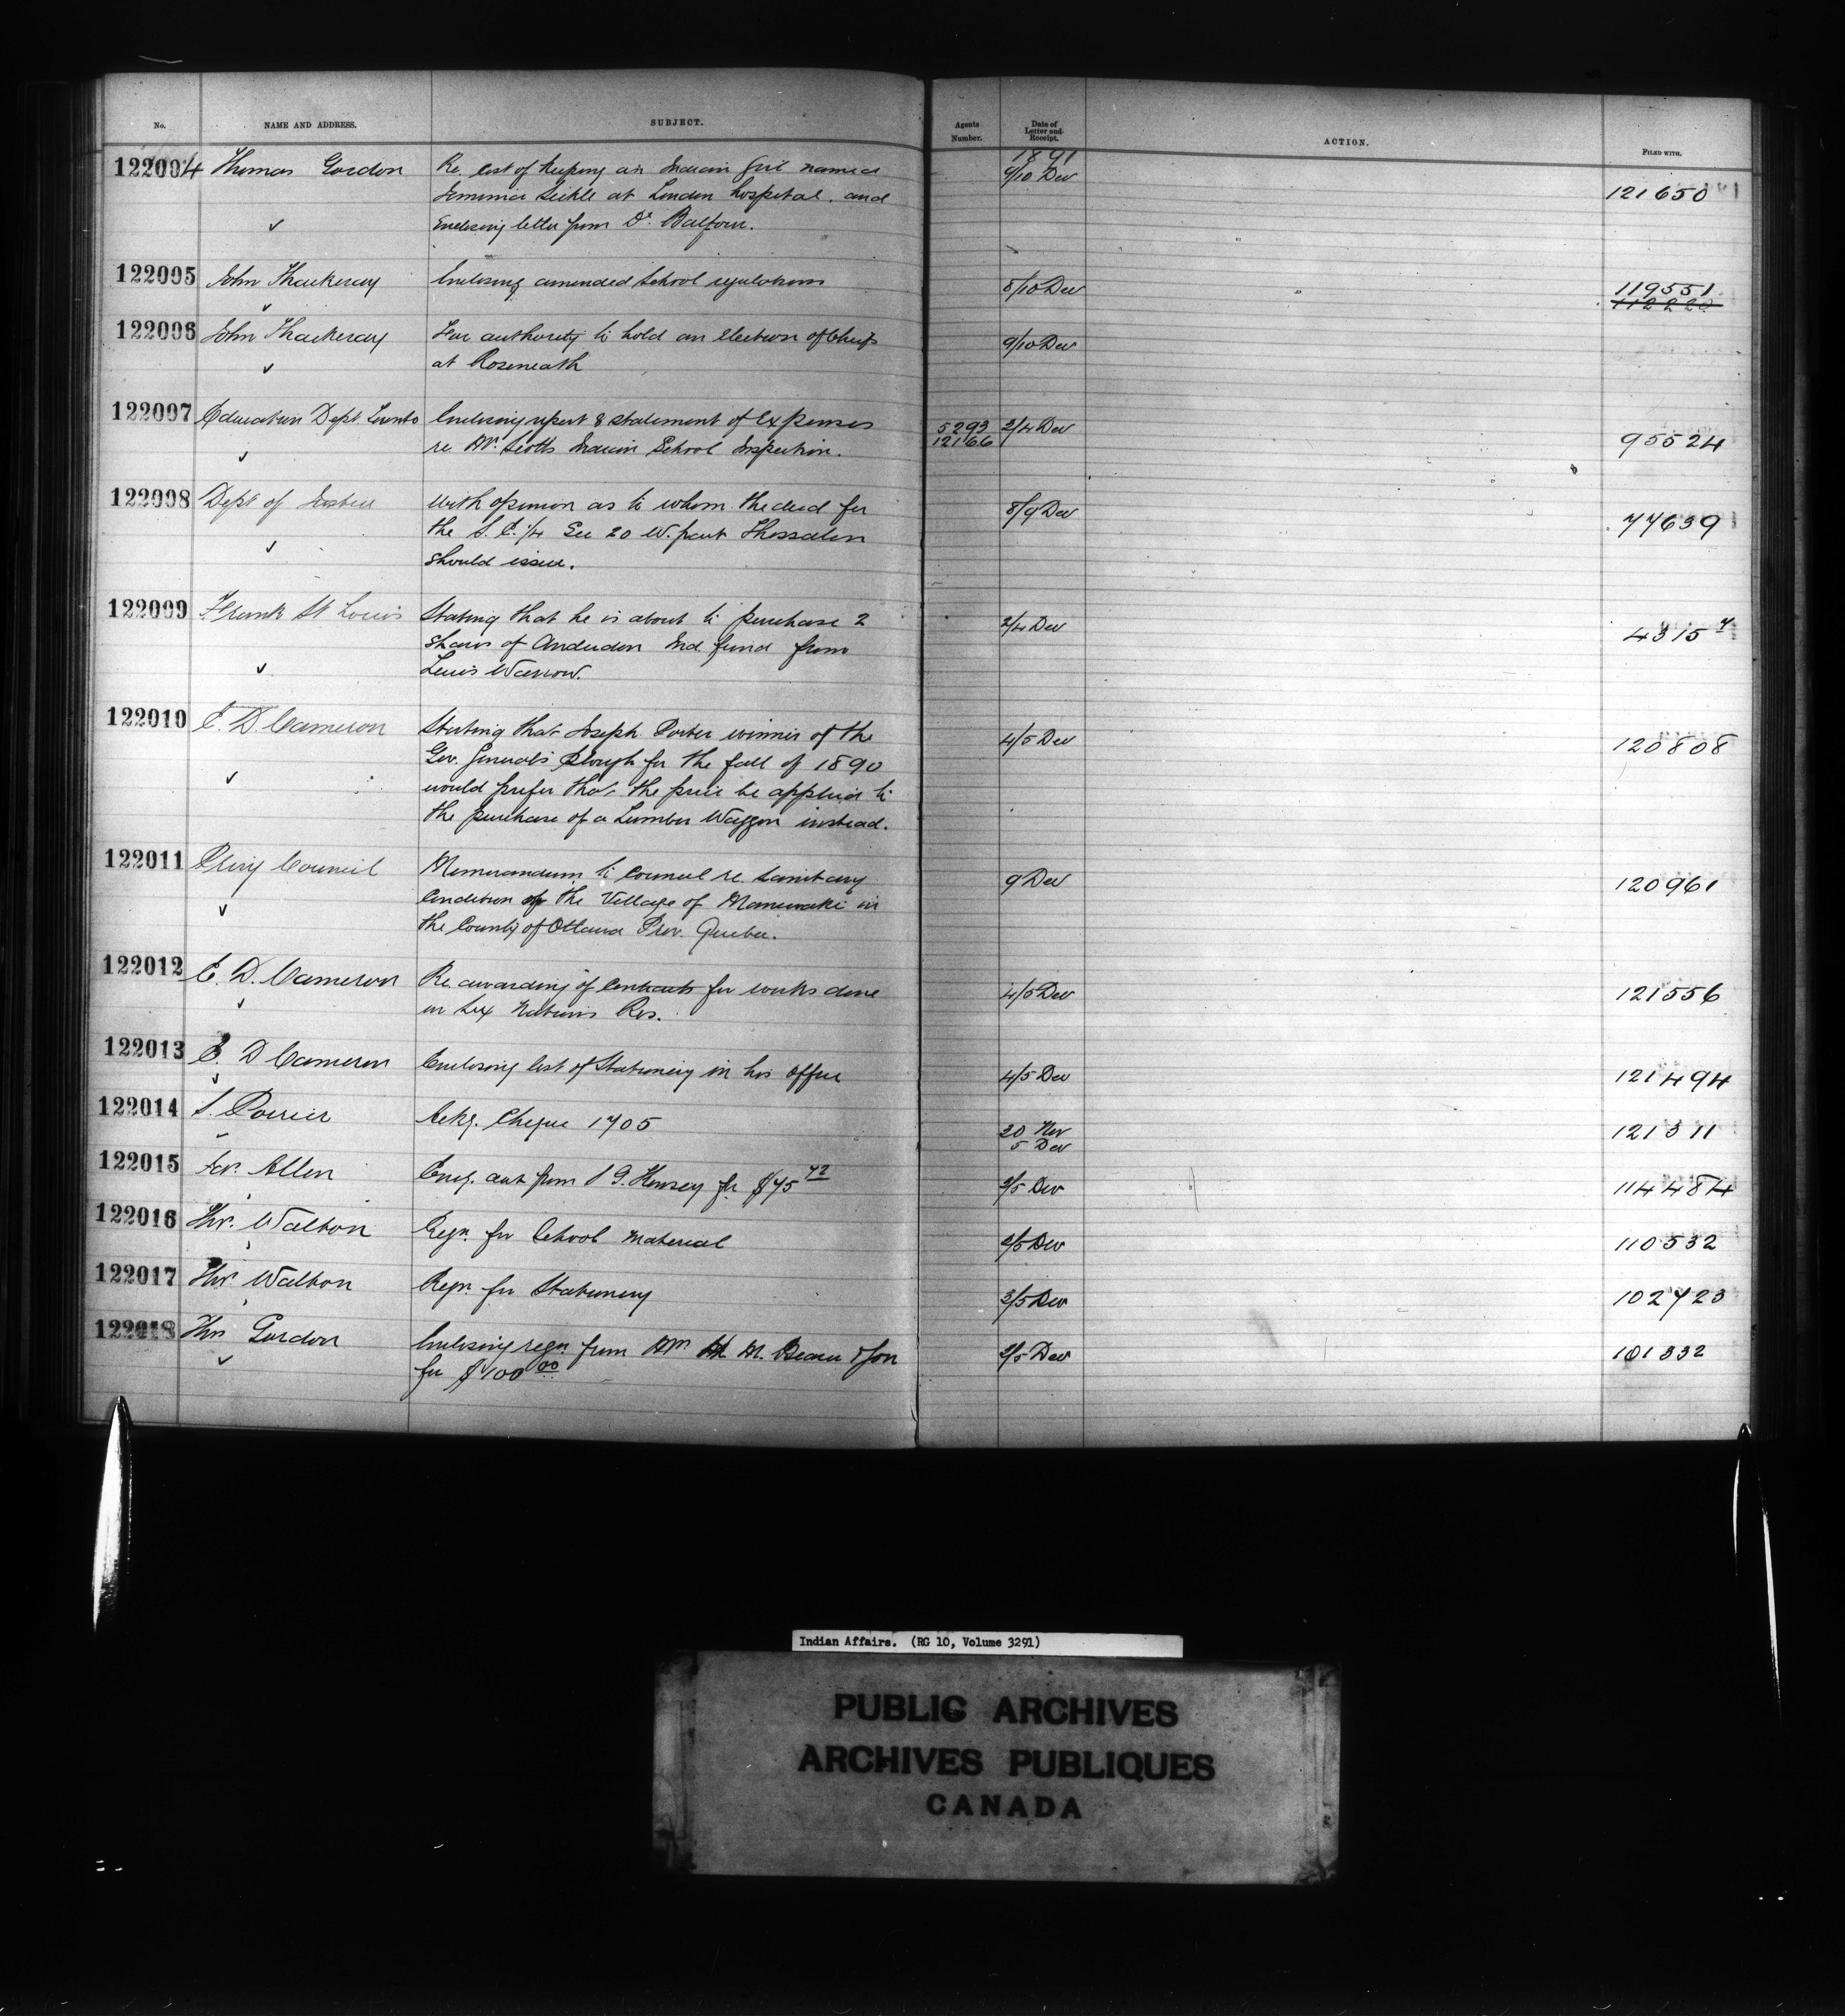 No. NAME AND ADDRESS. SUBJECT. Agents Number. Date of Letter and Receipt. ACTION. FILED WITH.
1891
122004 Thomas Gordon Re. cost of keeping an Indian Girl named 9/10 Dec 121650
Jemima Sickle at London hospital. and
Enclosing letter from Dr. Balfour.
122005 John Thackeray Enclosing amended School regulations 8/10 Dec 119551
112220
122006 John Thackeray For authority to hold an election of Chiefs 9/10 Dec
at Roseneath
122007 Education Dept. Toronto Enclosing report & statement of Expenses 5293 2/4 Dec 95524
re Mr. Scotts Indian School Inspection. 12166
122008 Dept of Justice With opinion as to whom the deed for 8/9 Dec 77639
the S.E. 1/4 Sec 20 W. part Thessalon
should issue.
122009 Frank St Louis Stating that he is about to purchase 2 2/4 Dec 4315 7
shares of Anderdon Ind. fund from
Louis Warrow.
122010 E. D. Cameron Stating that Joseph Porter winner of the 4/5 Dec 120808
Gov. General's Plough for the fall of 1890
would prefer that the price be applied to
the purchase of a Lumber Waggon instead.
122011 Privy Council Memorandum to Council re. Sanitary 9 Dec 120961
Condition of the Village of Maniwaki in
the County of Ottawa Prov. Quebec.
122012 E. D. Cameron Re. awarding of Contracts for works done 4/5 Dec 121556
on Six Nations Res.
122013 E. D Cameron Enclosing list of Stationery in his office 4/5 Dec 121494
122014 S. Poirier Ackg. Cheque 1705 20 Nov 121311
5 Dec
122015 Allen Encg. act from Hensey for $75 72 3/5 Dec 114484
122016 Thos. Walton Reqn. for School Material 2/5 Dec 110532
122017 Thos. Walton Reqn. for Stationery 3/5 Dec 102723
122018 Thos Gordon Enclosing reqn from M. & Son 2/5 Dec 101332
for $400 00
Indian Affairs. (RG 10, Volume 3291)
PUBLIC ARCHIVES
ARCHIVES PUBLIQUES
CANADA